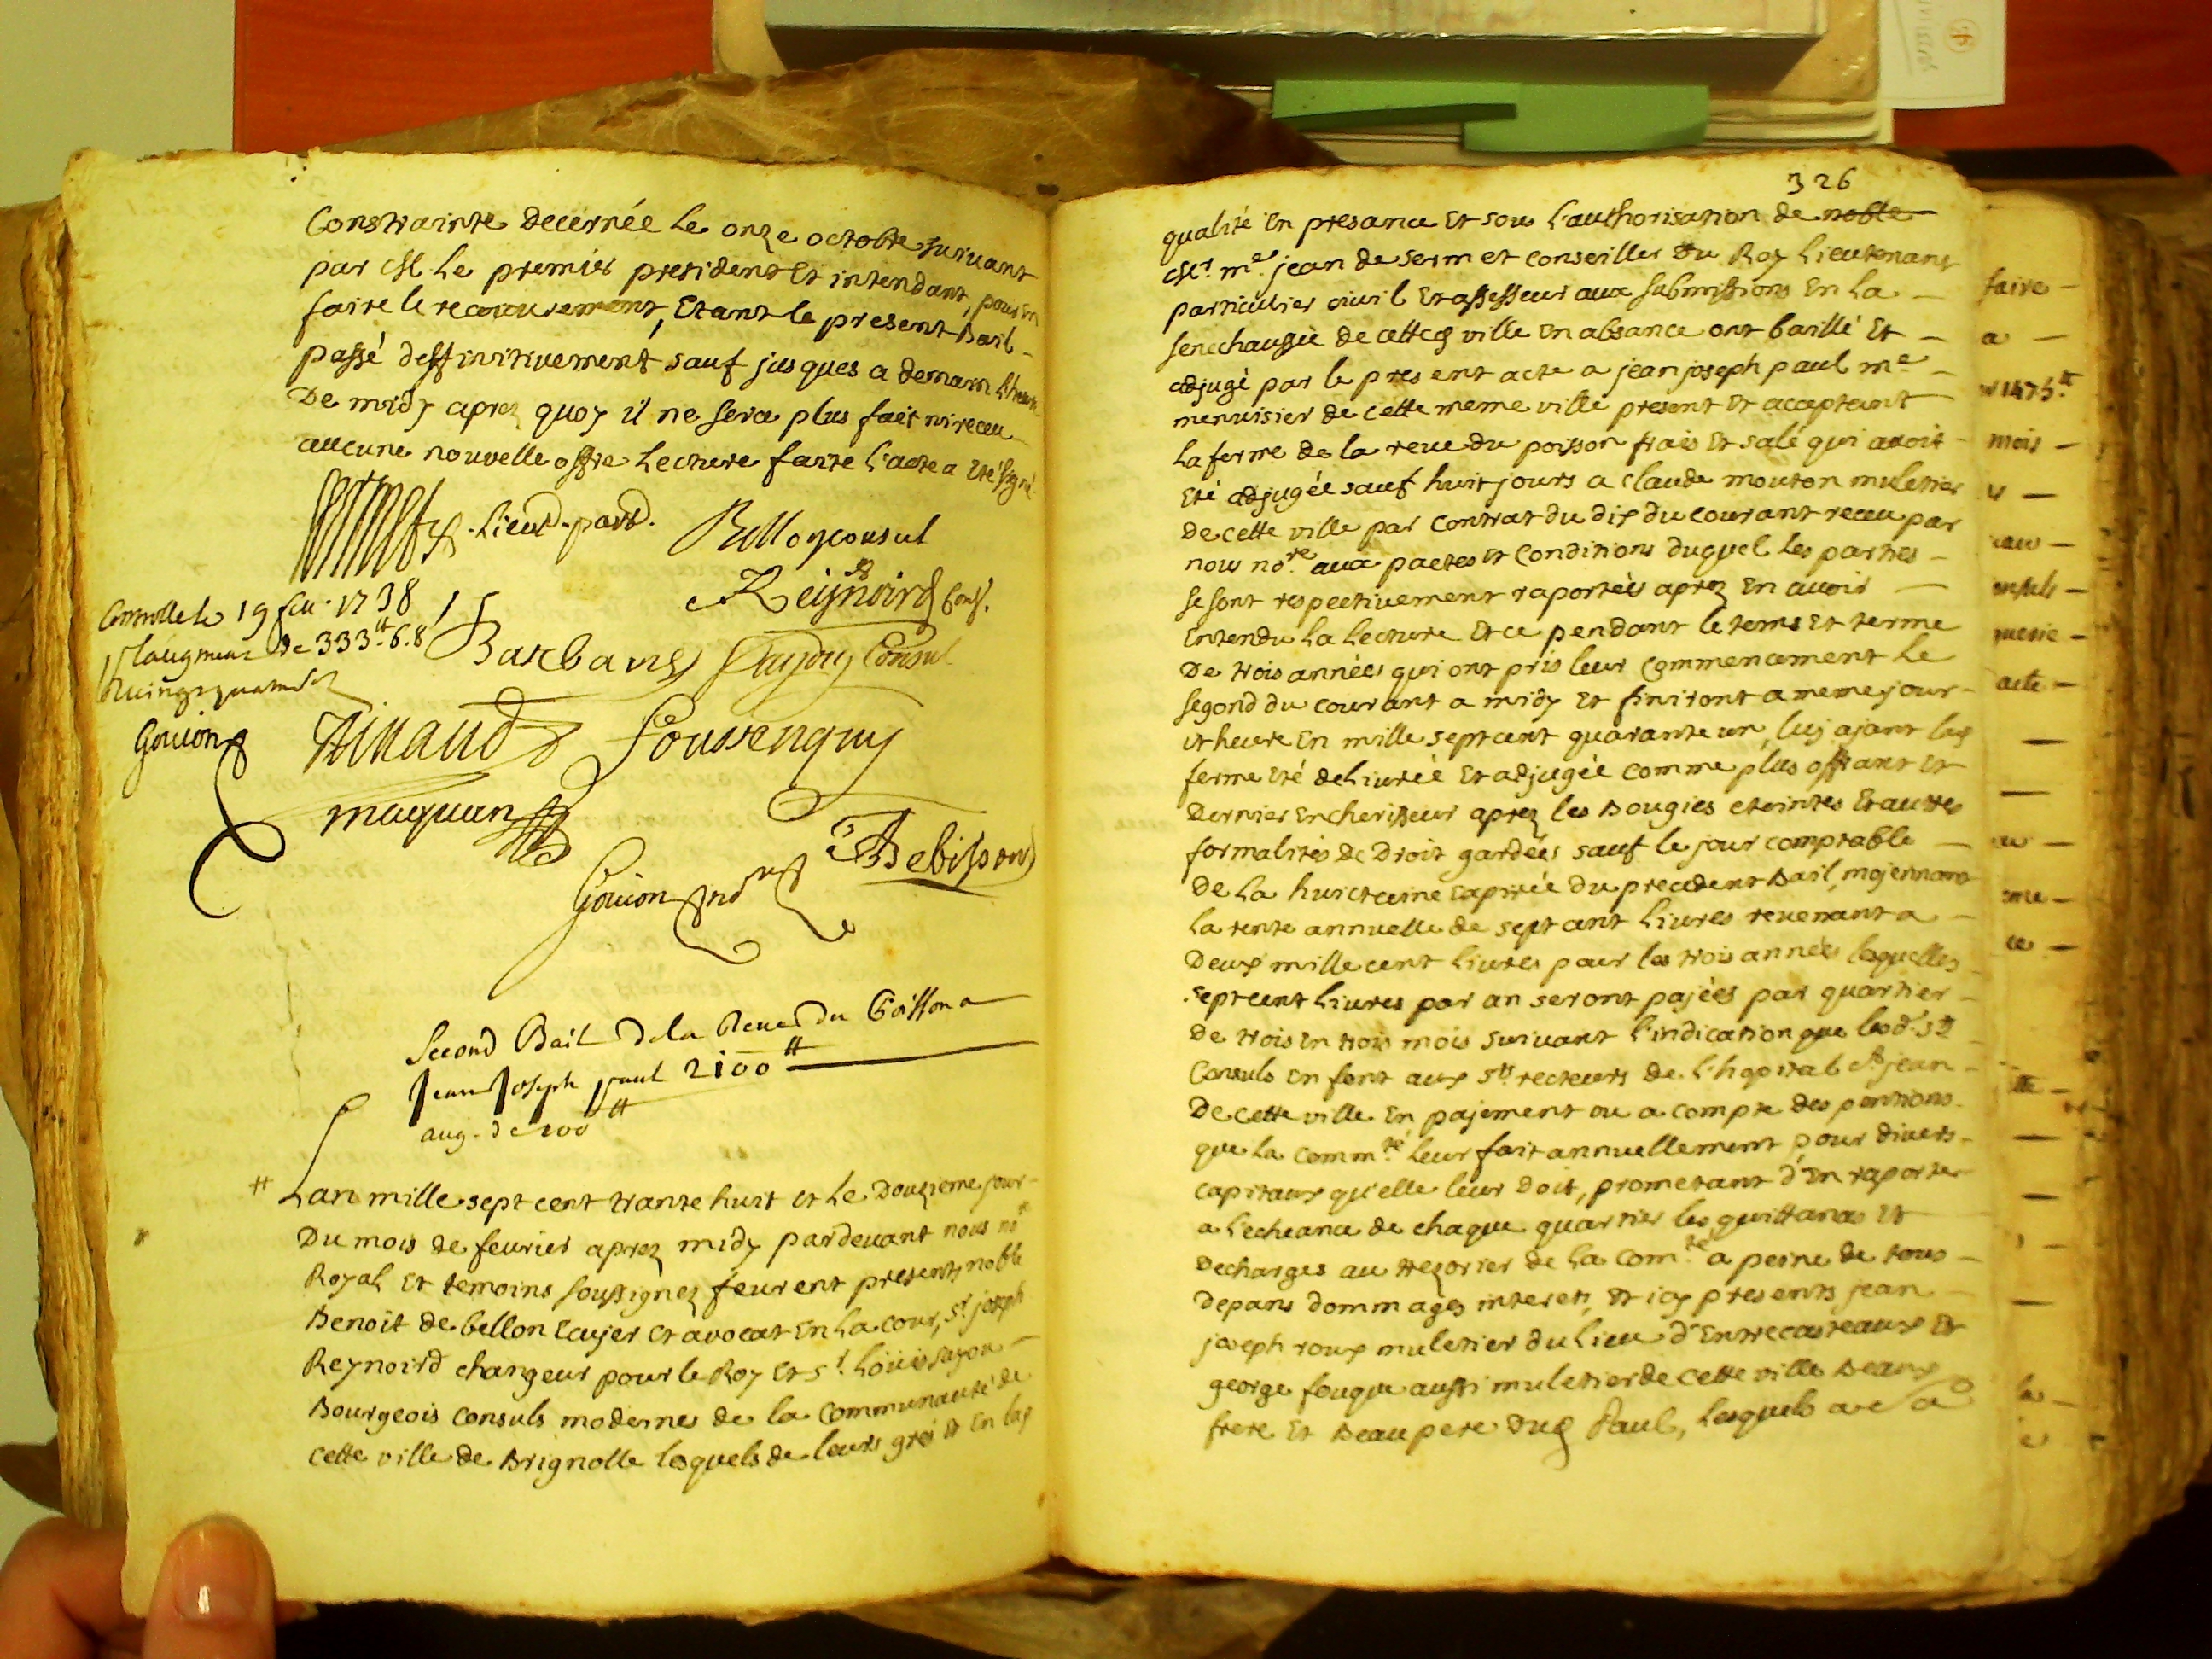 Constrainte decernée le onze octobre suivant
par Mr le premier president et intendant, pour en
faire le recouvrement, Etant le present Bail
passé deffinitivement sauf jusques a demain l'heure
De midy aprez quoy il ne sera plus fait ni receu
aucune nouvelle offre Lecture faite l'acte a eté signé
Lieut. part.
Bellon consul
Reijnoird Cons.
Controllé le 19 feu. 1738
l'augment de 333tt.6.8
Barbaroux
Consul
Goujon
Rinaud
Foussenquy
maquan
Goujon no.re
Second Bail De la Reue Du Poisson a
Jean Joseph paul 2100tt
aug. de 100tt
Lan mille sept cent trante huit et le Douzieme jour
Du mois de feurier aprez midy pardeuant nous no.re
Royal et temoins soussignez feurent presents noble
Benoit de bellon Ecujer et avocat En la cour, sr joseph
Reynoird chargeur pour le Roy et sr. Loüis
Bourgeois consuls modernes de la communauté de
cette ville de Brignolle lesquels de leurs grés et en lad
326
qualité En presance et sous l'authorisation de noble
Mr. me. jean de Sermet conseiller Du Roy Lieutenant
particulier ciuil et assesseur aux submissions En la
senechaussée de cette ville en absance ont baillé et
adjugé par le present acte a jean joseph paul me
menuisier de cette meme ville present et acceptant
la ferme de la reue du poisson frais et salé qui avoit
eté adjugée sauf huit jours a Claude mouton muletier
de cette ville par contrat du dix du courant receu par
nous no.re aux pactes et conditions duquel les parties
se sont respectivement raportées aprez En avoir
Entendu la lecture Et ce pendant le tems et terme
De trois années qui ont pris leur commencement le
segond du courant a midy et finiront a meme jour
et heure En mille sept cent quarante un, luy ajant lad
ferme eté deliurée et adjugée comme plus offrant et
Dernier encherisseur aprez les Bougies eteintes et autres
formalités de Droit gardées sauf le jour comptable
De la huictaine expirée du precedent Bail, mojennant
la rente annuelle de sept cent liures reuenant a
Deux mille cent liures pour les trois années lesquelles
sept cent liures par an seront pajées par quartier
De trois en trois mois suiuant l'indication que lesd. srs
Consuls en font aux srs recteurs de l'hopital St jean
De cette ville En pajement ou a compte des pentions
que la comm.té leur fait annuellement pour divers
capitaux qu'elle leur doit, prometant d'en raporter
a l'echeance de chaque quartier les quittances et
Decharges au trezorier de la com.té a peine de tous
Depans dommages interets, Et icy presents jean
joseph roux muletier du lieu d'Entrecasteaux et
george fouque aussi muletier de cette ville Beaux
frere et Beau pere dud Paul, lesquels
faire
a
1475tt
mois
acte